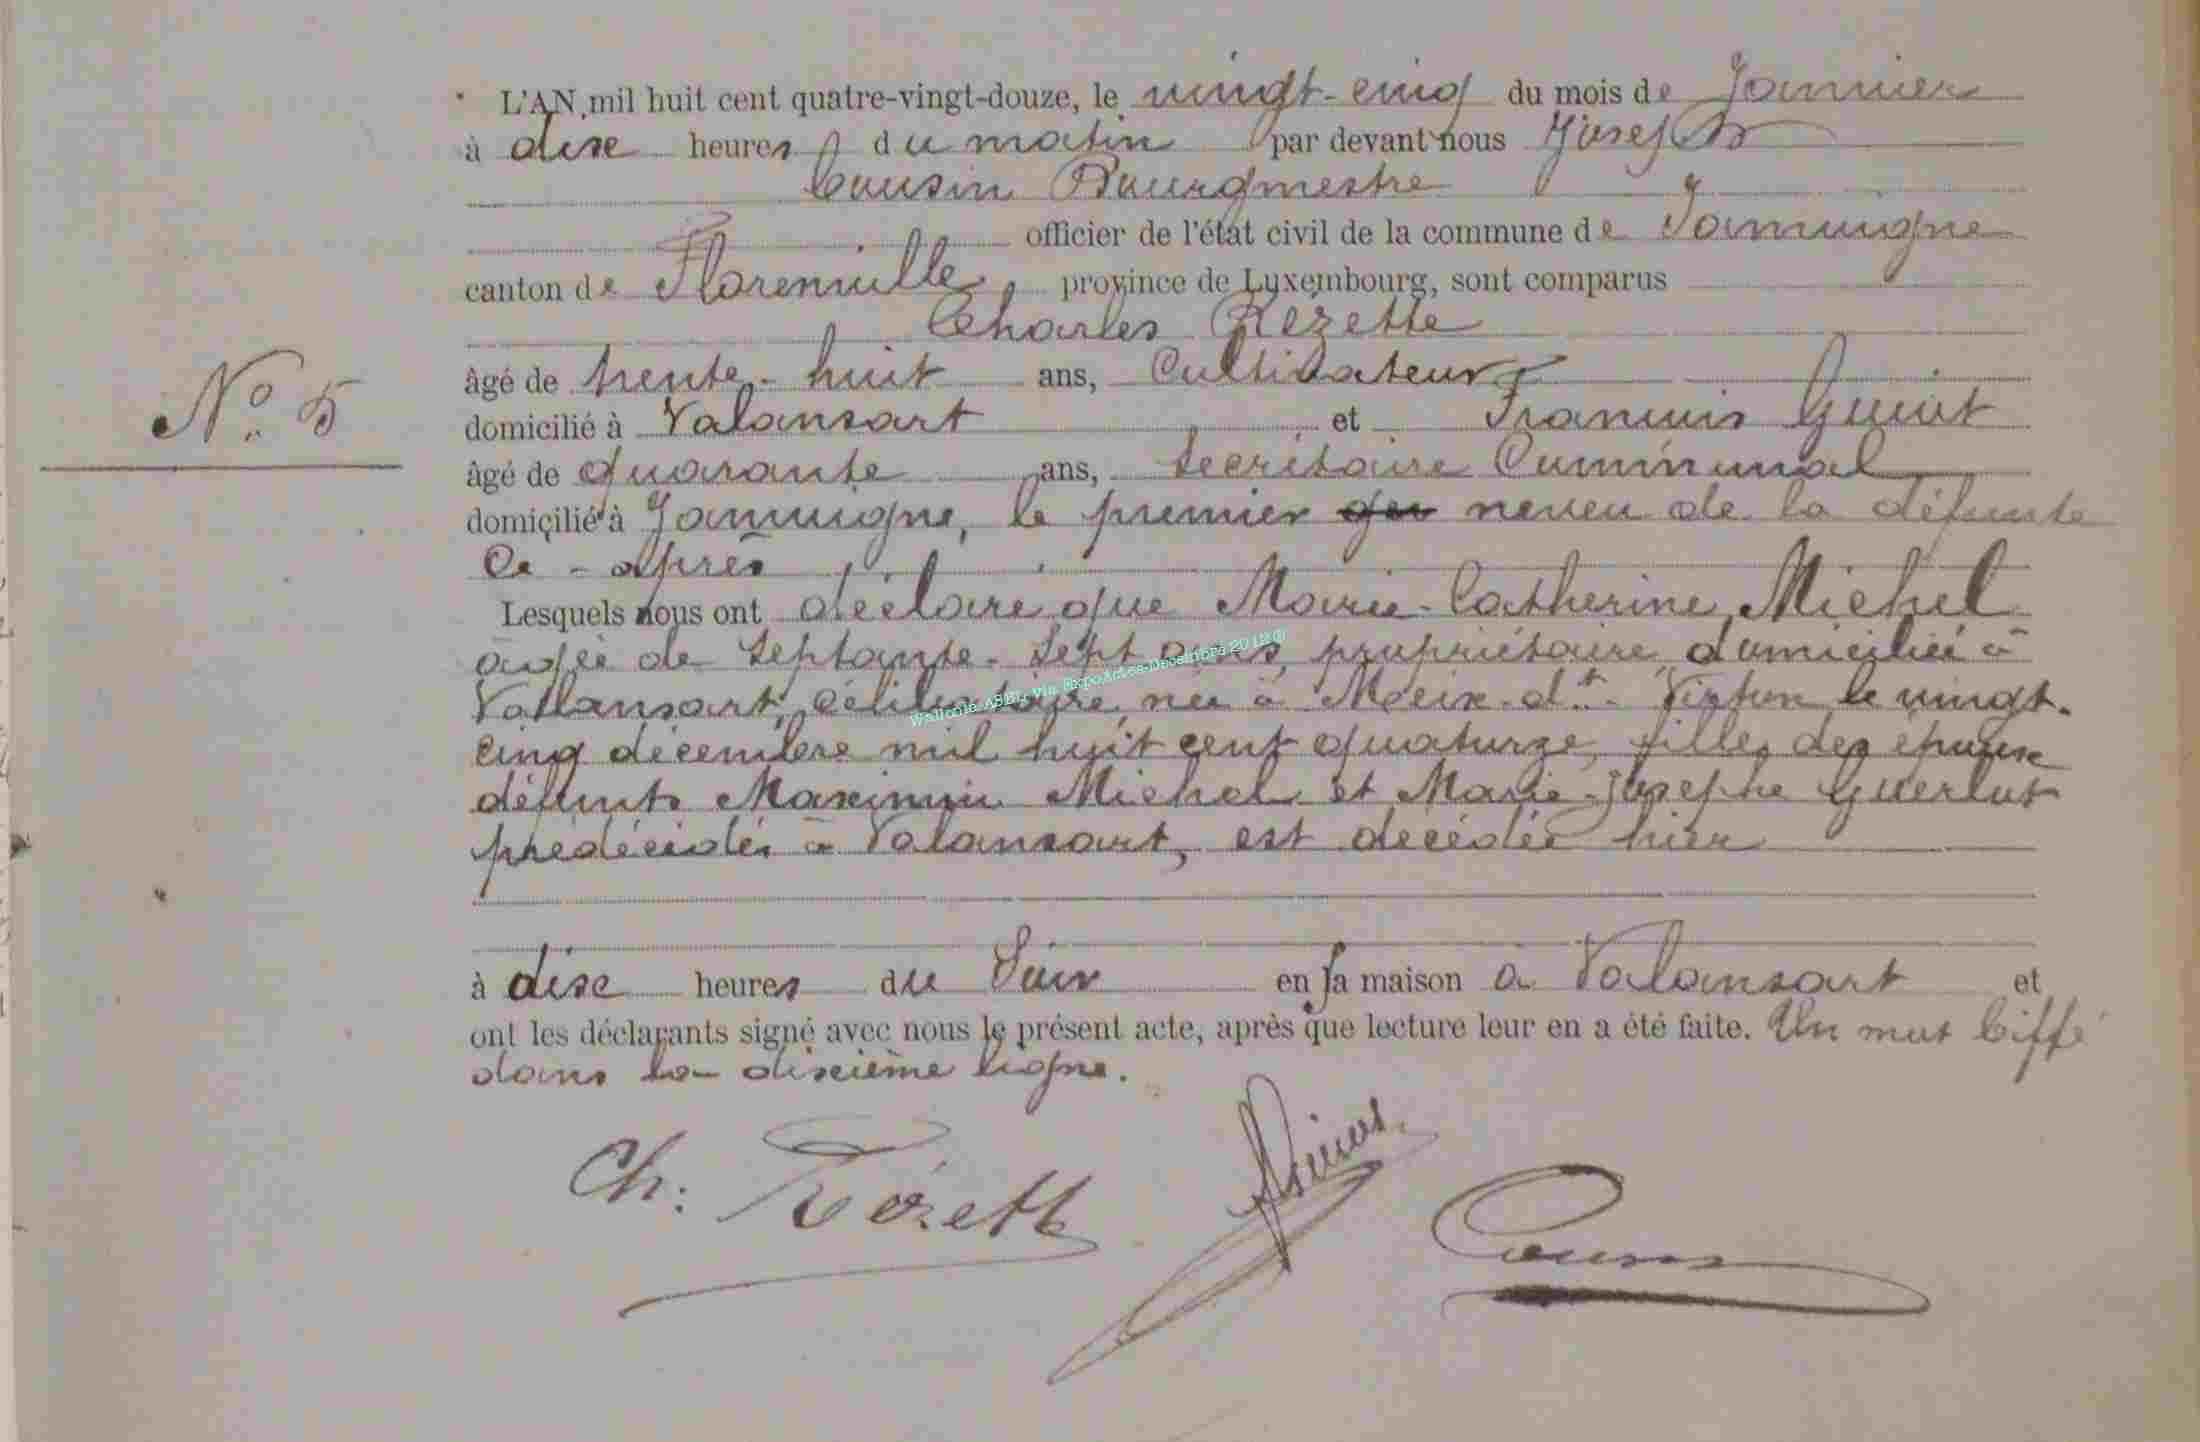 L'AN mil huit cent quatre-vingt-douze, le vingt-cinq du mois de Janvier
à dix heures du matin par devant nous Joseph
Cousin Bourgmestre
officier de l'état civil de la commune de Jamoigne
canton de Florenville, province de Luxembourg, sont comparus
Charles Rézette
âgé de trente-huit ans, Cultivateur
N° 5
domicilié à Valansart et François Guiot
âgé de quarante ans, Secrétaire Communal
domicilié à Jamoigne, le premier neveu de la défunte
Ci-après
Lesquels nous ont déclaré que Marie-Catherine Michel
âgée de septante-sept ans, propriétaire, domiciliée à
Vallansart, célibataire, née à Meix-dt-Virton le vingt-
cinq décembre mil huit cent quatorze, fille des époux
défunts Maximin Michel et Marie-Josephe Guerlot
prédécédés à Valansart, est décédée hier
Wallonie ASBL, via ExpoActes-Décembre 2012©
à dix heures du Soir en sa maison à Valansart et
ont les déclarants signé avec nous le présent acte, après que lecture leur en a été faite. Un mot biffé
dans la dixième ligne.
Ch: Rézette
Cousin